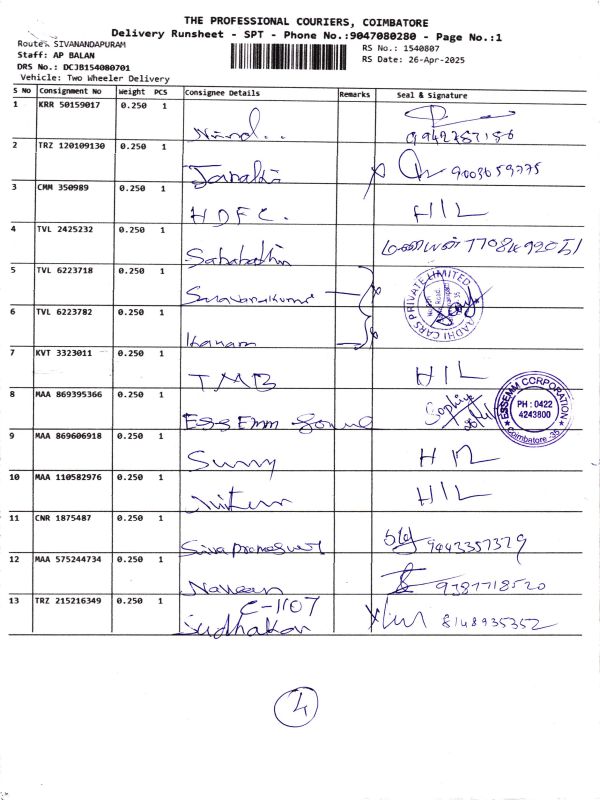 THE PROFESSIONAL COURIERS, COIMBATORE
Delivery Runsheet - SPT - Phone No.:9047080280 - Page No.:1
Route: SIVANANDAPURAM
RS No.: 1540807
Staff: AP BALAN
RS Date: 26-Apr-2025
DRS No.: DCJB154080701
Vehicle: Two Wheeler Delivery
S No Consignment No Weight PCS Consignee Details Remarks Seal & Signature
1 KRR 50159017 0.250 1
2 TRZ 120109130 0.250 1 Janaki 9003659775
3 CMM 350989 0.250 1 HDFC. HIL
4 TVL 2425232 0.250 1
5 TVL 6223718 0.250 1 Saravanakumar
AADHI CARS PRIVATE LIMITED
6 TVL 6223782 0.250 1
7 KVT 3323011 0.250 1 TMB HIL
8 MAA 869395366 0.250 1 ESSEmm Sophiya
ESSEMM CORPORATION
PH : 0422
4243800
Coimbatore -35
9 MAA 869606918 0.250 1 Sunny
10 MAA 110582976 0.250 1 HIL
11 CNR 1875487 0.250 1 9443357379
12 MAA 575244734 0.250 1 Naveen 9387718520
13 TRZ 215216349 0.250 1 C-1107
Sudhakar 8148935352
4